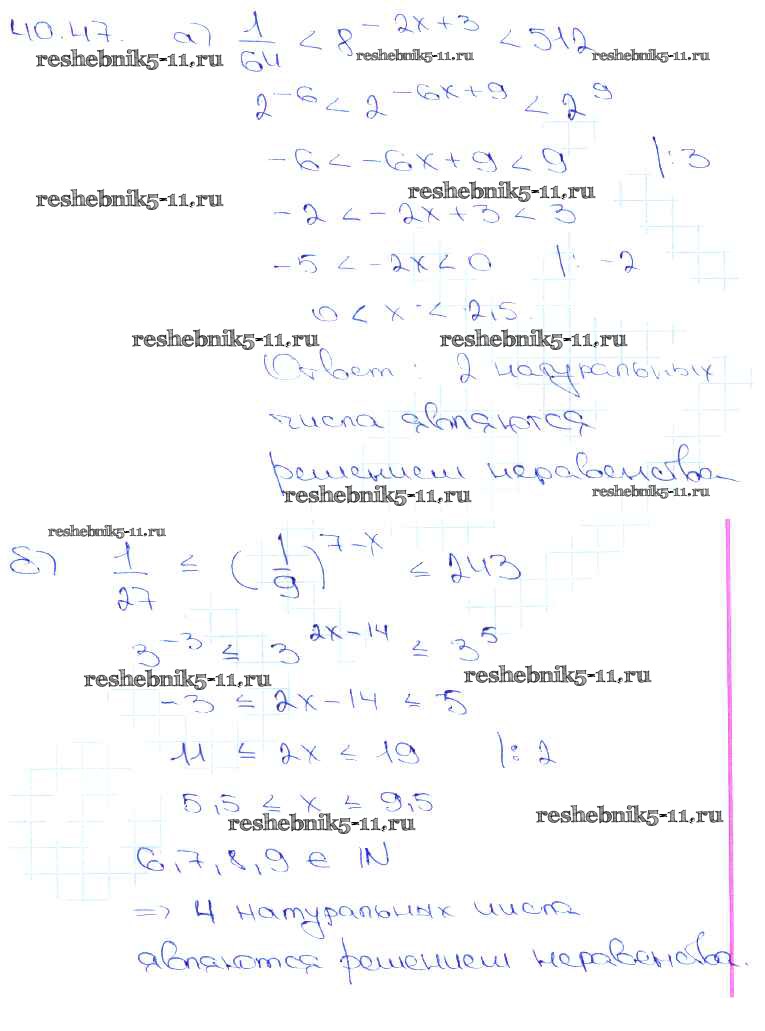 40.47. а) 1/64 < 8^(-2x+3) < 512
reshebnik5-11.ru reshebnik5-11.ru reshebnik5-11.ru
2^(-6) < 2^(-6x+9) < 2^9
-6 < -6x+9 < 9 |:3
reshebnik5-11.ru reshebnik5-11.ru
-2 < -2x+3 < 3
-5 < -2x < 0 |: -2
0 < x < 2,5.
reshebnik5-11.ru reshebnik5-11.ru
Ответ: 2 натуральных
числа являются
решением неравенства
reshebnik5-11.ru reshebnik5-11.ru
reshebnik5-11.ru
б) 1/27 ≤ (1/9)^(7-x) ≤ 243
3^(-3) ≤ 3^(2x-14) ≤ 3^5
reshebnik5-11.ru reshebnik5-11.ru
-3 ≤ 2x-14 ≤ 5
11 ≤ 2x ≤ 19 |: 2
5,5 ≤ x ≤ 9,5
reshebnik5-11.ru reshebnik5-11.ru
6,7,8,9 ∈ N
=> 4 натуральных числа
являются решением неравенства.